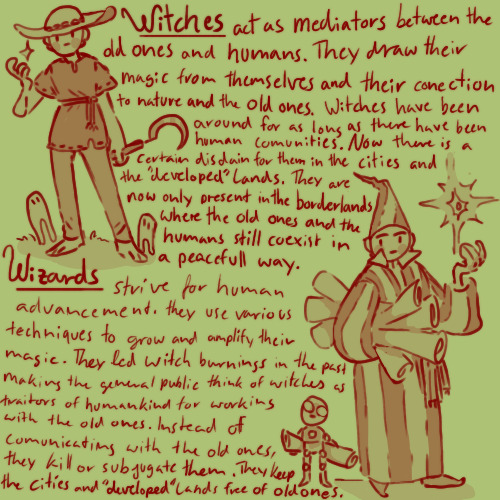 Witches act as mediators between the
old ones and humans. They draw their
magic from themselves and their conection
to nature and the old ones. Witches have been
around for as long as there have been
human comunities. Now there is a
certain disdain for them in the cities and
the "developed" lands. They are
now only present in the borderlands
where the old ones and the
humans still coexist in
a peacefull way.
Wizards strive for human
advancement. they use various
techniques to grow and amplify their
magic. They led witch burnings in the past
making the general public think of witches as
traitors of humankind for working
with the old ones. Instead of
comunicating with the old ones,
they kill or subjugate them. They keep
the cities and "developed" lands free of old ones.